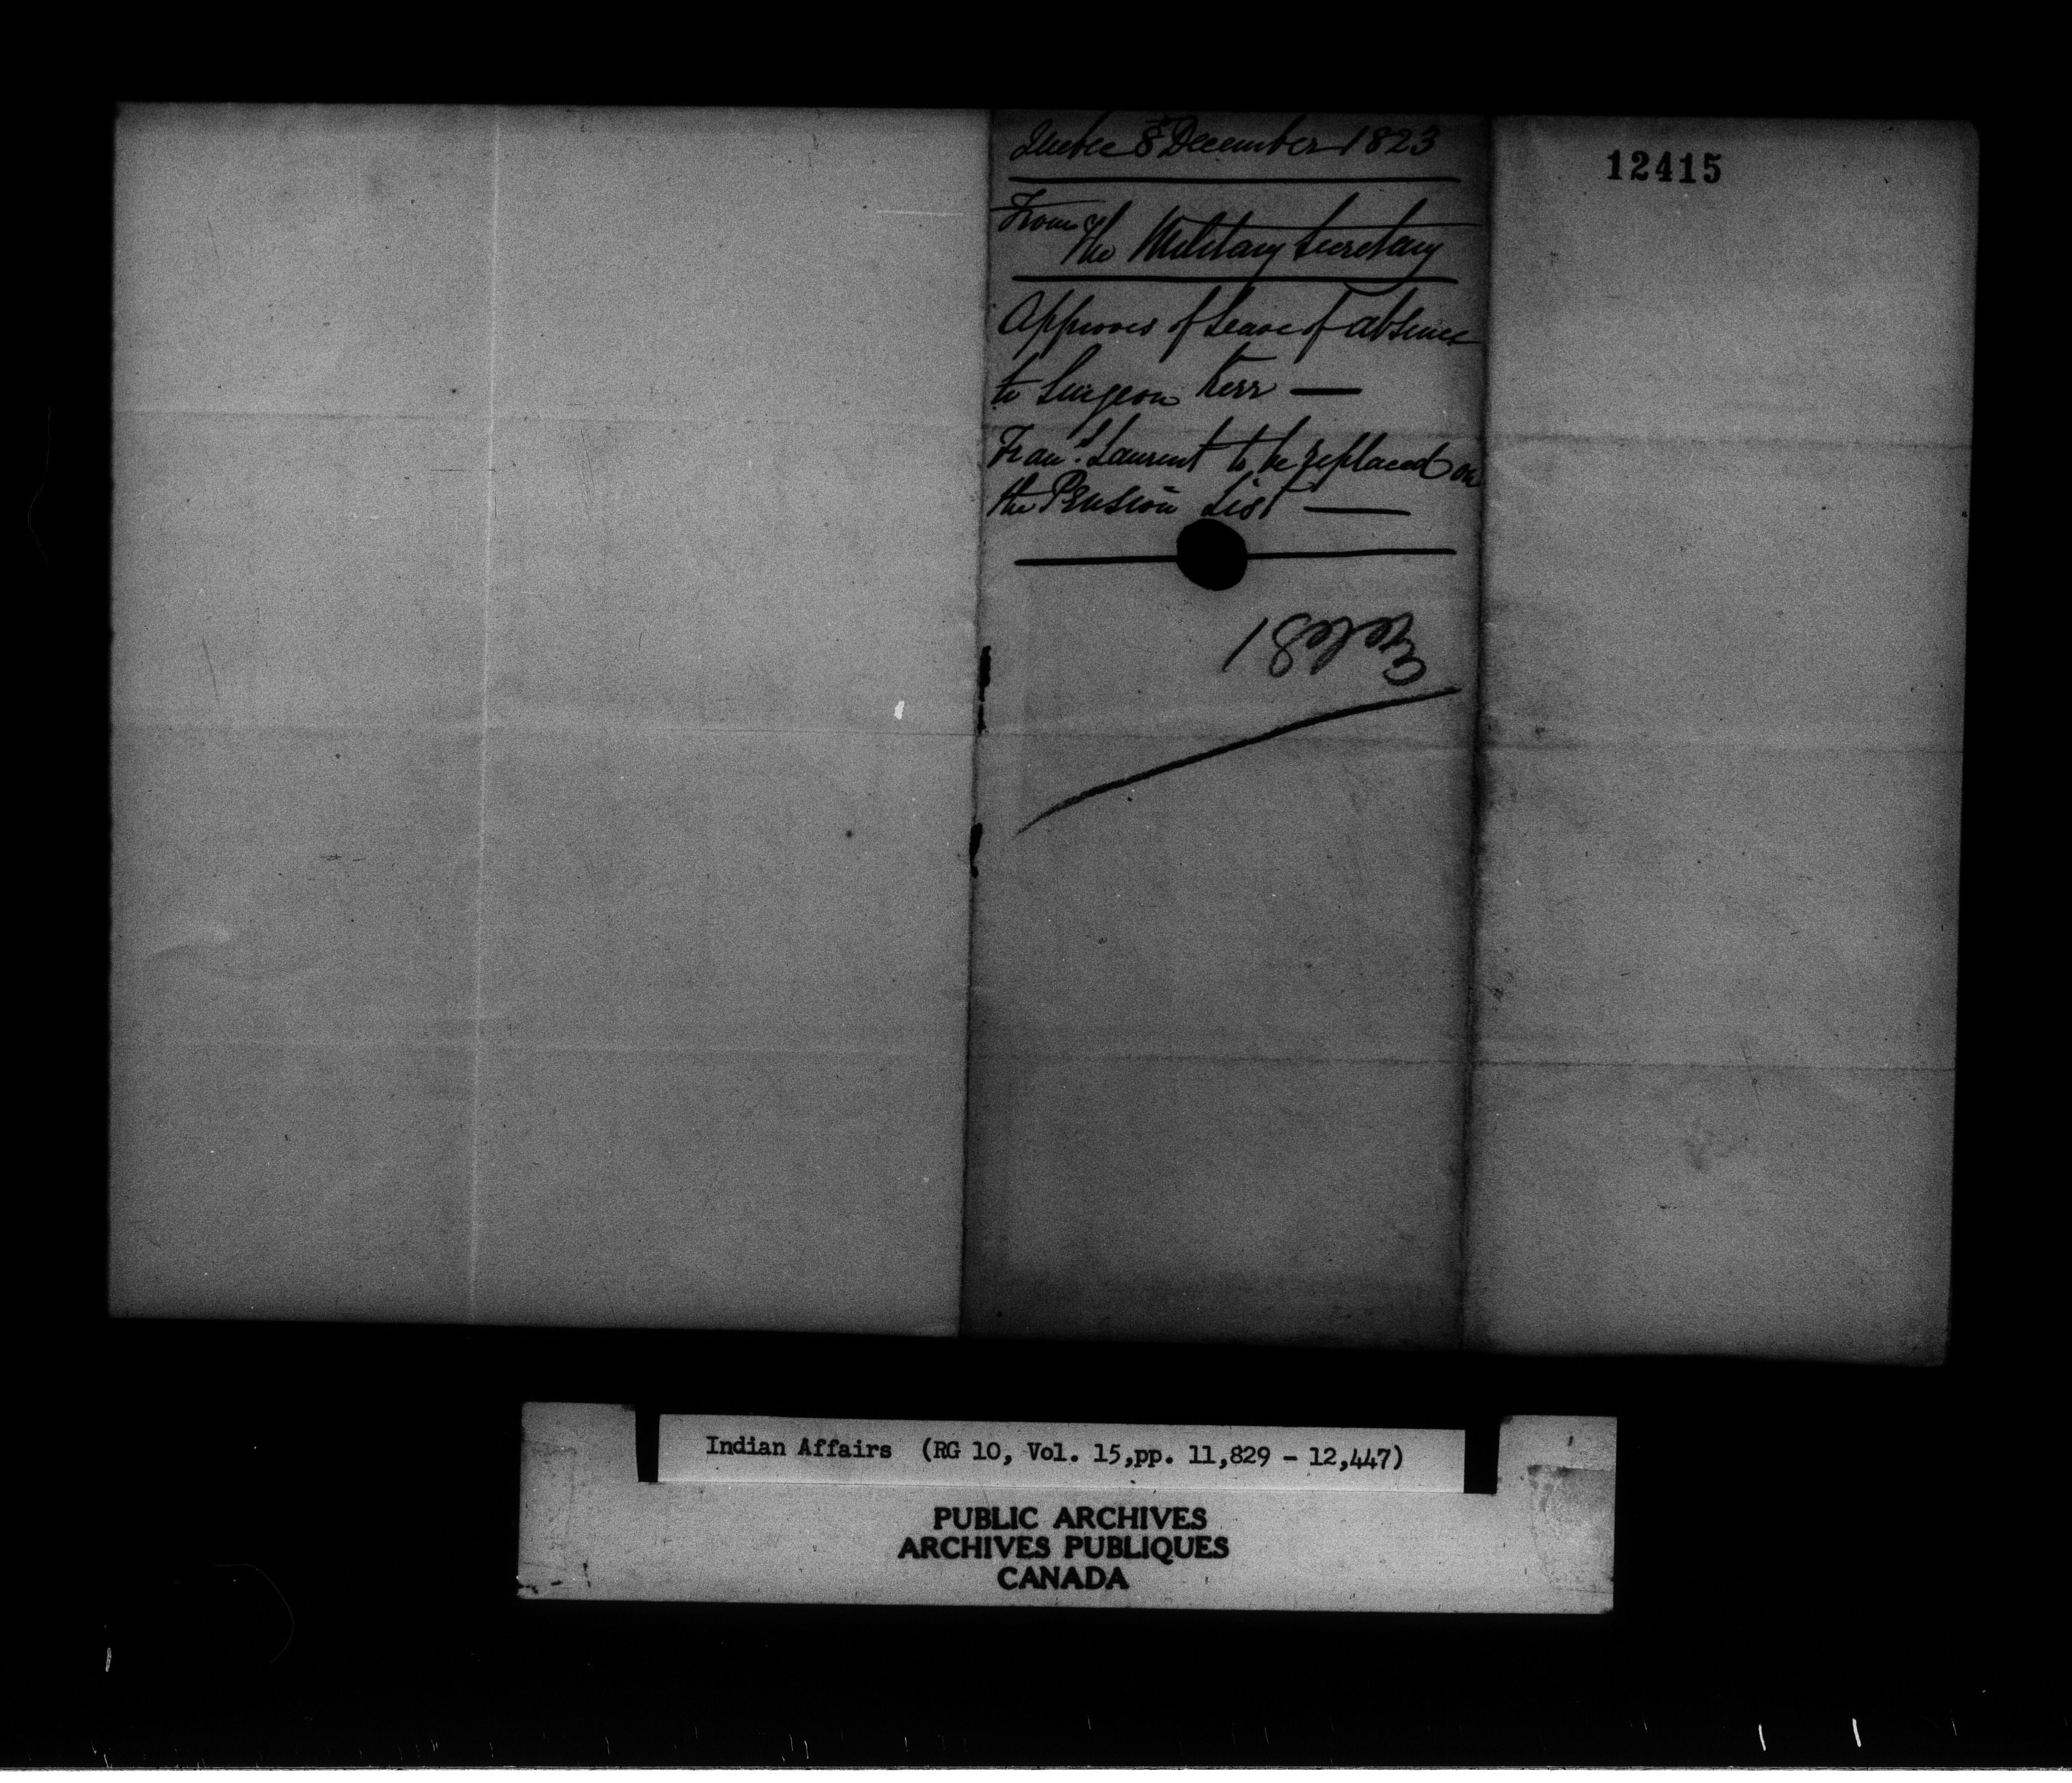 Quebec 8th December 1823
12415
From The Military Secretary
Approves of Leave of absence
to Surgeon Kerr —
Frans. Laurent to be replaced on
the Pension List —
Indian Affairs (RG 10, Vol. 15,pp. 11,829 - 12,447)
PUBLIC ARCHIVES
ARCHIVES PUBLIQUES
CANADA